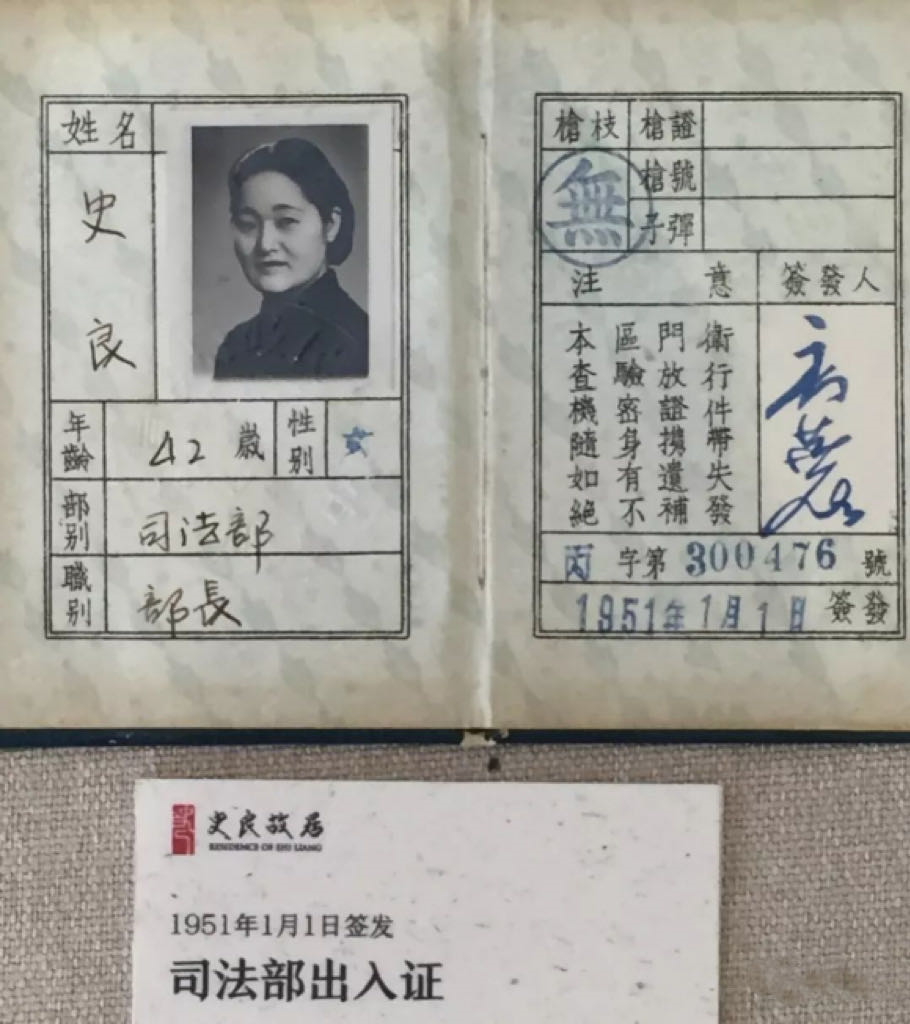 姓名
史良
年齡 42歲 性别 女
部别 司法部
職别 部長
槍枝 槍證
槍號
子彈
無
注意 簽發人
本區門衛
查驗放行
機密證件
隨身攜帶
如有遺失
絕不補發
丙字第300476號
1951年1月1日簽發
史良故居
RESIDENCE OF SHI LIANG
1951年1月1日签发
司法部出入证